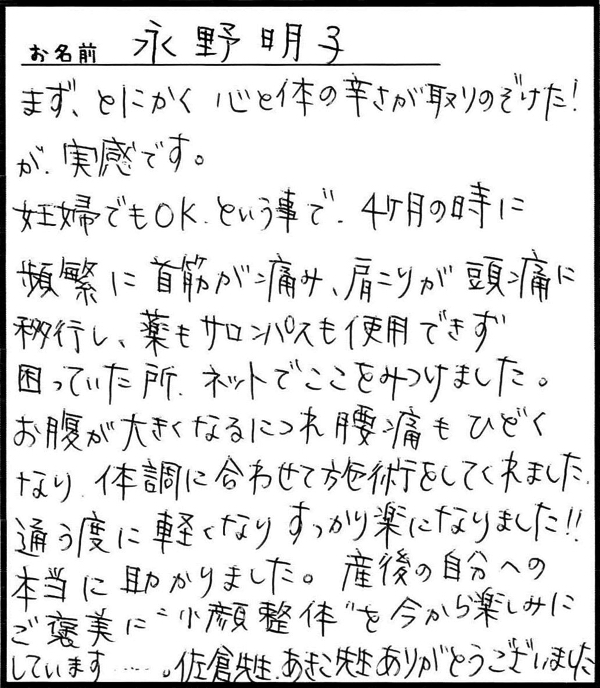 お名前 永野明子
まず、とにかく 心と体の辛さが取りのぞけた!
が、実感です。
妊婦でもOK、という事で、4ケ月の時に
頻繁に首筋が痛み、肩こりが頭痛に
移行し、薬もサロンパスも使用できず
困っていた所、ネットでここをみつけました。
お腹が大きくなるにつれ腰痛もひどく
なり、体調に合わせて施術をしてくれました。
通う度に軽くなりすっかり楽になりました!!
本当に助かりました。産後の自分への
ご褒美に"小顔整体"を今から楽しみに
しています……。佐倉先生、あきこ先生ありがとうございました